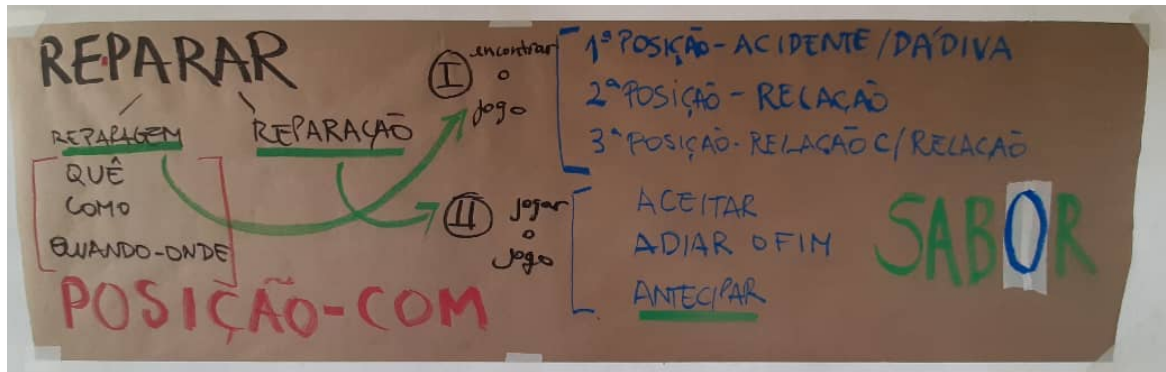 REPARAR
REPARAGEM REPARAÇÃO
QUÊ
COMO
QUANDO-ONDE
POSIÇÃO-COM
I encontrar
o
jogo
1ª POSIÇÃO - ACIDENTE / DÁDIVA
2ª POSIÇÃO - RELAÇÃO
3ª POSIÇÃO - RELAÇÃO C/ RELAÇÃO
II jogar
o
jogo
ACEITAR
ADIAR O FIM
ANTECIPAR
SABOR